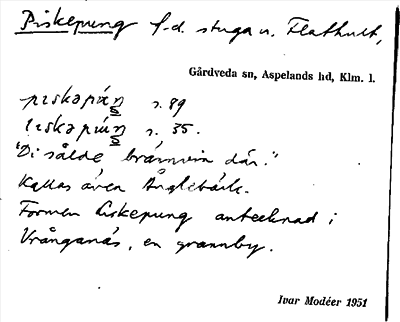 Piskepung f.d. stuga u. Flathult,
Gårdveda sn, Aspelands hd, Klm. l.
pɪskəpúŋ s. 89
lɪskəpúŋ s. 35.
"Di sålde brännvin där."
Kallas även Ånglebäck.
Formen Liskepung antecknad i
Vrånganäs, en grannby.
Ivar Modéer 1951